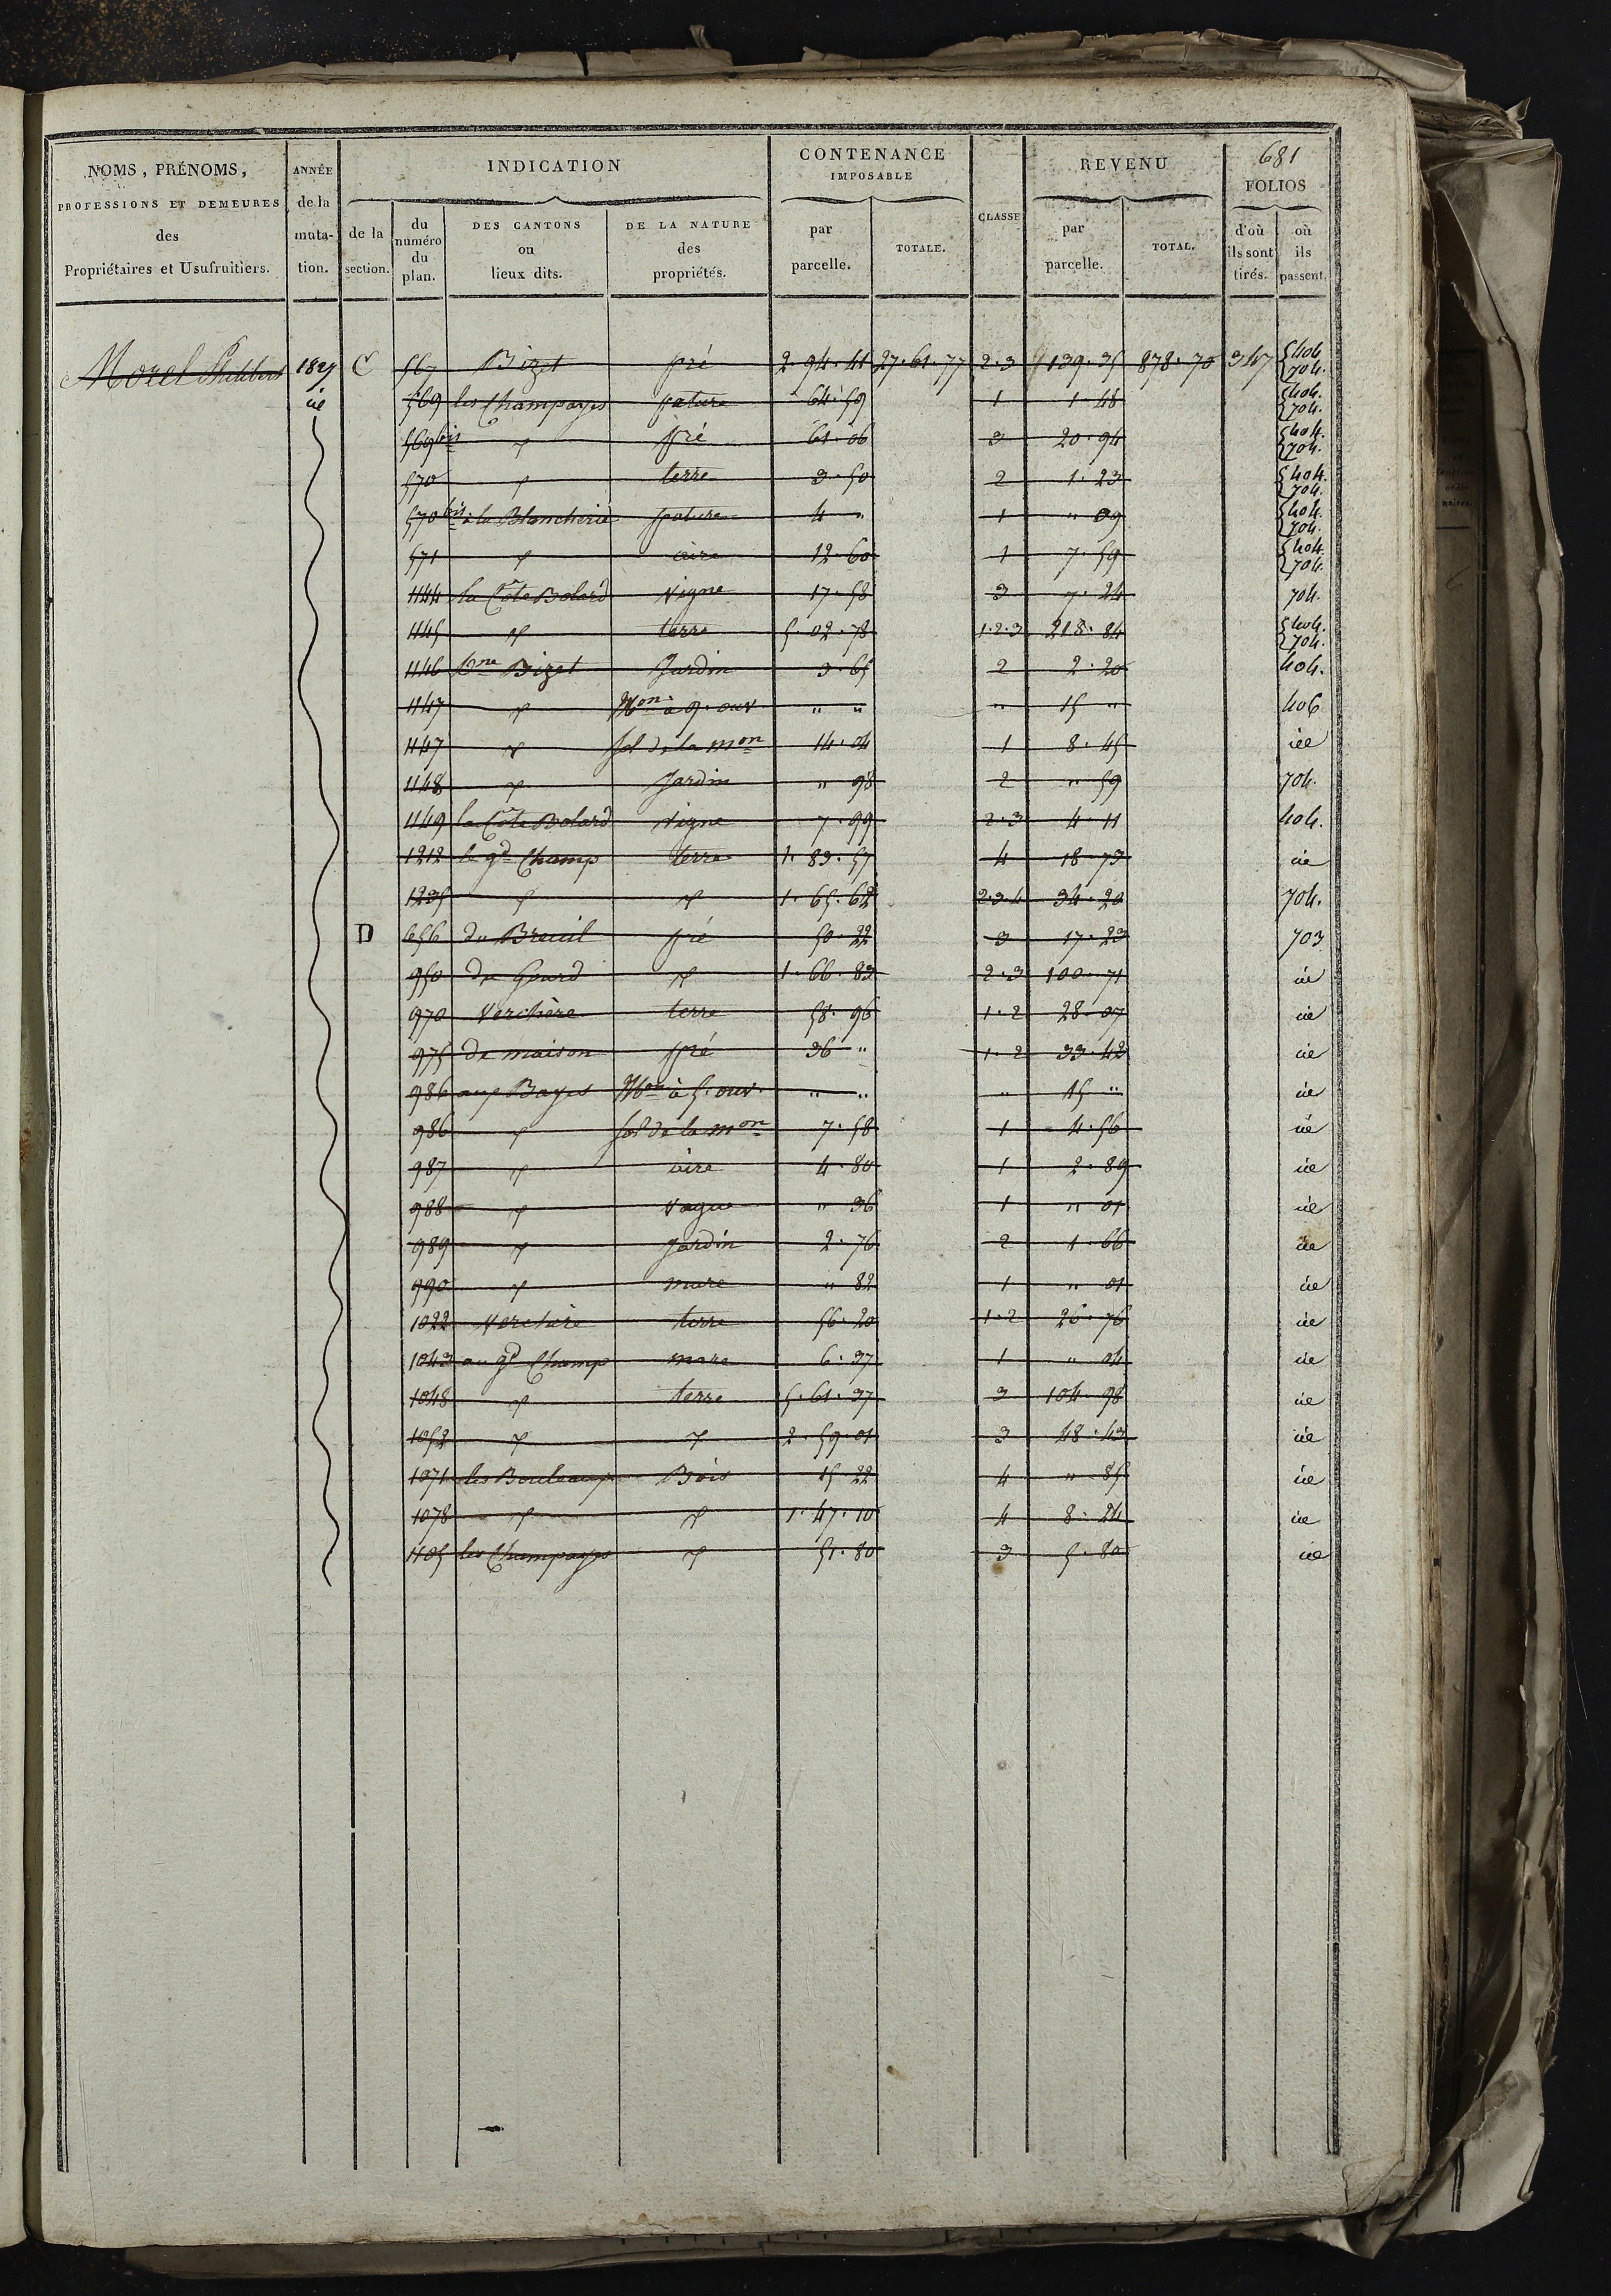 681
NOMS, PRÉNOMS, PROFESSIONS ET DEMEURES des Propriétaires et Usufruitiers.
ANNÉE de la muta- tion.
INDICATION
de la section.
du numéro du plan.
DES CANTONS ou lieux dits.
DE LA NATURE des propriétés.
CONTENANCE IMPOSABLE
par parcelle.
TOTALE.
CLASSE
REVENU
par parcelle.
TOTAL.
FOLIOS
d'où ils sont tirés.
où ils passent.
Morel Philibert 1827 C 567 Bizet pré 2. 94. 41 27. 61. 77 2. 3 139. 35 878. 70 347 404. 704.
id 569 les Champayes pature 64. 59 1 1. 48 404. 704.
569 bis " pré 61. 06 3 20. 94 404. 704.
570 " terre 3. 50 2 1. 23 404. 704.
570 bis à la Blancherie pature 4 " 1 " 09 404. 704.
571 " aire 12. 60 1 7. 59 404. 704.
1144 la Côte Bolard vigne 17. 58 3 7. 24 704.
1145 " terre 5. 02. 78 1. 2. 3 218. 84 404. 704.
1146 Bizet Jardin 3. 65 2 2. 20 404.
1147 " Mon à 9. ouv " " " 15 " 406
1147 " sol de la mon 14. 04 1 8. 45 id
1148 " Jardin " 98 2 " 59 704.
1149 la Côte Bolard vigne 7. 99 2. 3 4. 11 404.
1212 le gd Champ terre 1. 83. 57 4 18. 73 id
1235 " " 1. 65. 62 2. 3. 4 34. 20 704.
D 656 du Breuil pré 50. 22 3 17. 23 703
950 du Gourd " 1. 66. 83 2. 3 100. 71 id
970 Verchère terre 58. 96 1. 2 28. 07 id
975 de maison pré 36 " 1. 2 33. 42 id
986 aux Bayes Mon à 5. ouv. " " " 15 " id
986 " sol de la mon 7. 58 1 4. 56 id
987 " aire 4. 80 1 2. 89 id
988 " vague " 36 1 " 01 id
989 " Jardin 2. 76 2 1. 66 id
990 " mare " 82 1 " 01 id
1022 Verchère terre 56. 20 1. 2 26. 76 id
1043 au gd Champ mare 6. 37 1 " 04 id
1048 " terre 5. 61. 37 3 104. 98 id
1052 " " 2. 59. 01 3 48. 43 id
1071 les Bouleaux Bois 15. 22 4 " 85 id
1078 " " 1. 47. 10 4 8. 24 id
1105 les Champayes " 51. 80 3 5. 80 id